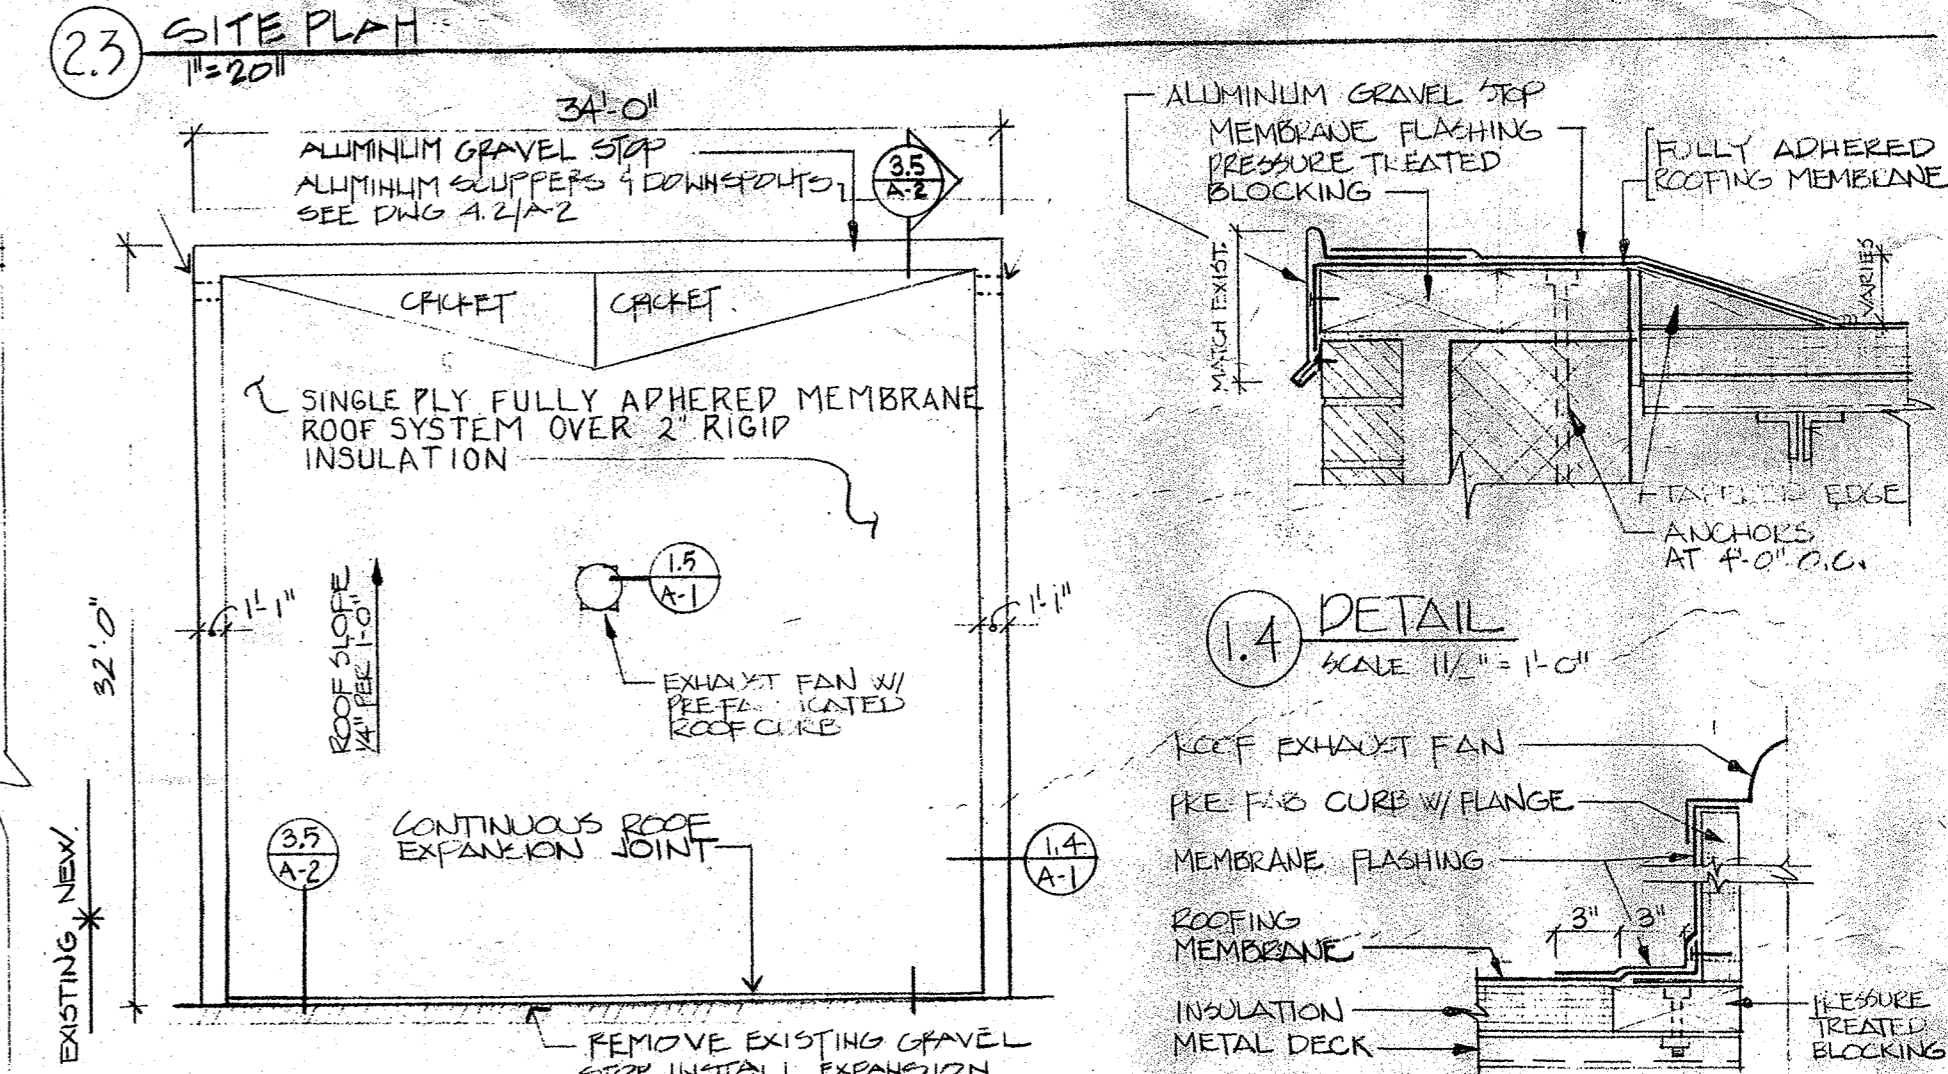 2.3
SITE PLAN
1"=20"
34'-0"
ALUMINUM GRAVEL STOP
ALUMINUM SCUPPERS & DOWNSPOUTS,
SEE DWG 4.2/A-2
3.5
A-2
CRICKET
CRICKET
SINGLE PLY FULLY ADHERED MEMBRANE
ROOF SYSTEM OVER 2" RIGID
INSULATION
1.5
A-1
ROOF SLOPE
1/4" PER 1'-0"
32'-0"
1'-1"
1'-1"
EXHAUST FAN W/
ROOF CURB
CONTINUOUS ROOF
EXPANSION JOINT
3.5
A-2
1.4
A-1
EXISTING NEW.
REMOVE EXISTING GRAVEL
STOP INSTALL EXPANSION
ALUMINUM GRAVEL STOP
MEMBRANE FLASHING
PRESSURE TREATED
BLOCKING
FULLY ADHERED
ROOFING MEMBRANE
MATCH EXIST.
VARIES
EDGE
ANCHORS
AT 4'-0" O.C.
1.4
DETAIL
SCALE 1 1/2" = 1'-0"
ROOF EXHAUST FAN
PRE FAB CURB W/ FLANGE
MEMBRANE FLASHING
3" 3"
ROOFING
MEMBRANE
INSULATION
METAL DECK
PRESSURE
TREATED
BLOCKING